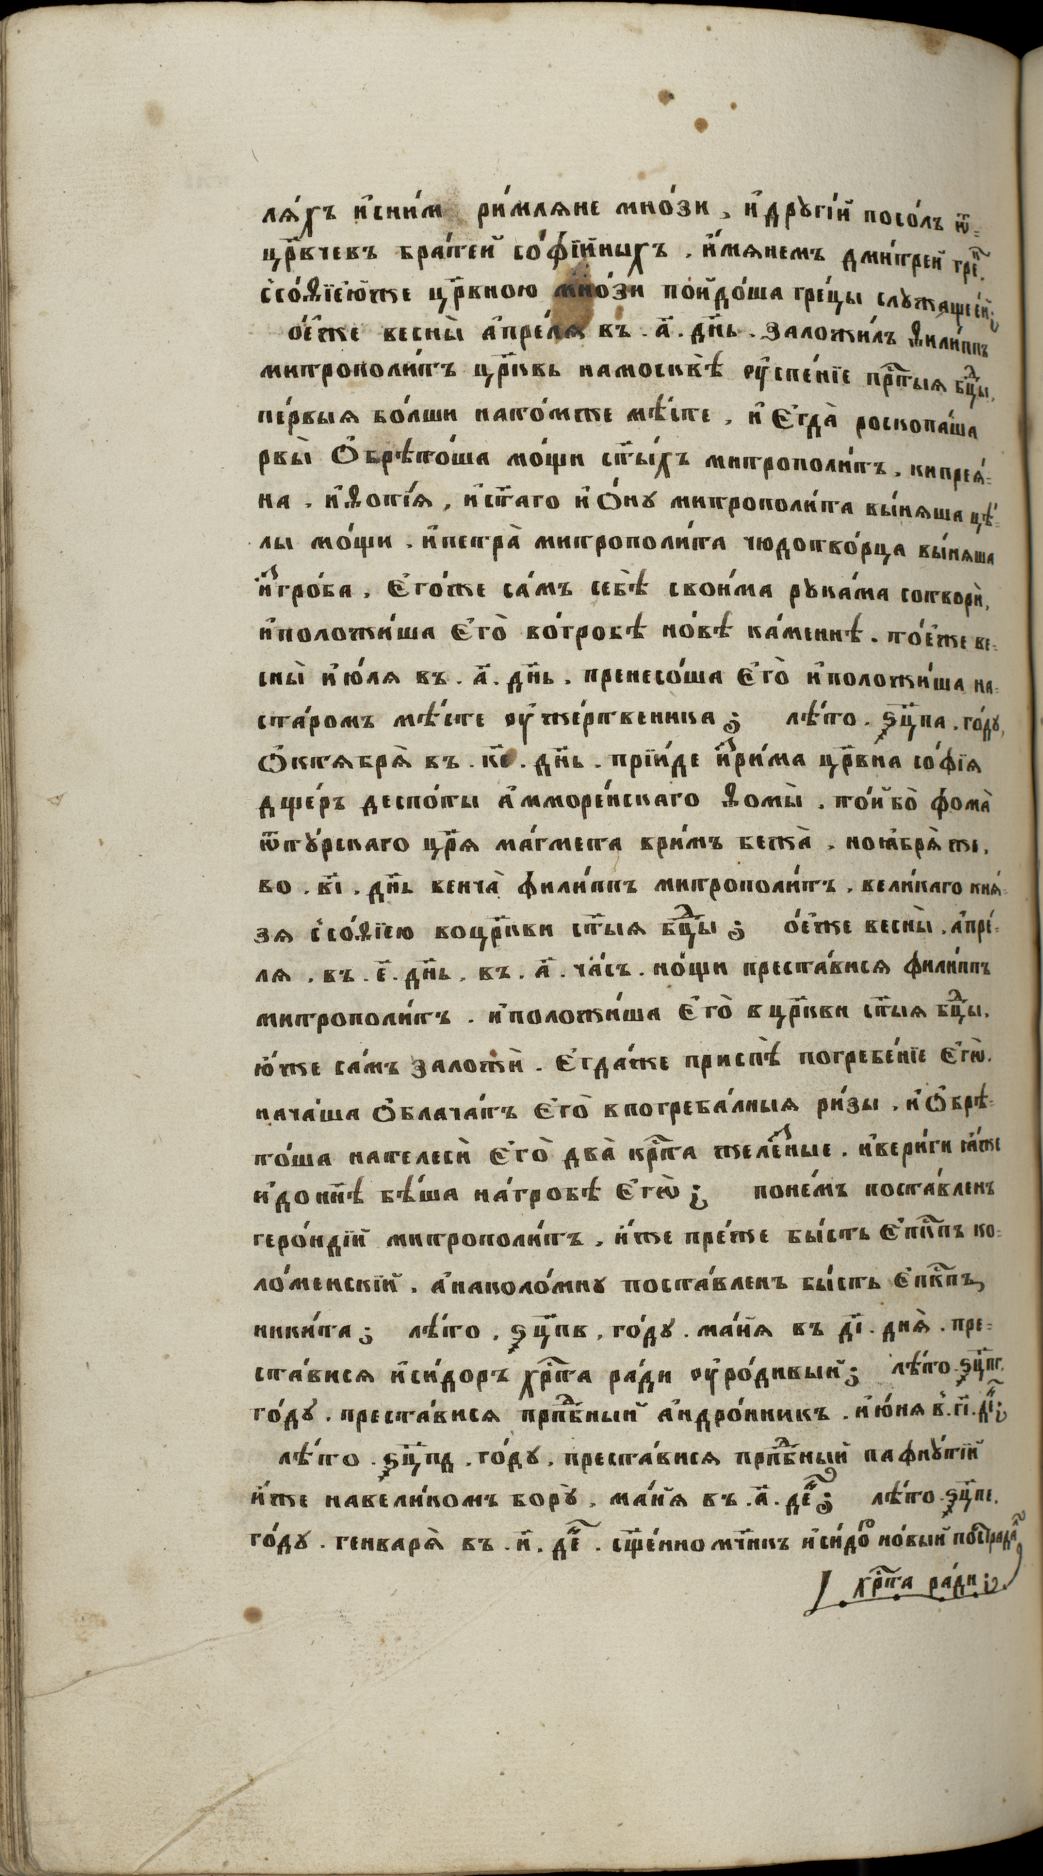 ля́хъ и҆сни́м ри́мляне мно́зи, и҆дрꙋгі́й посо́лъ ѿ=
цр҃вчевъ бра́тей со́фїйныхъ. и҆́мянемъ дми́трей гре́.
с̾со́ѳїею́же цр҃вною мно́зи пойдо́ша гре́цы слꙋжаще є҆й;
о́є҆же весны̀ а҆пре́ля въ. а҃. дн҃ь. заложи́лъ ѳили́ппъ
митрополи́тъ цр҃ковь намосквѣ̀ ᲂу҆спе́нїе прⷭ҇тыя бцⷣы,
пе́рвыя бо́лши нато́мже мѣ́сте, и҆ є҆гда̀ роскопа́ша
рвы̀ ѻ҆брѣто́ша мо́щи ст҃ы́хъ митрополи́тъ, кипрея́=
на. и҆ѳоті́я, и҆ст҃аго и҆ ѻ҆́нꙋ митрополи́та вы́няша цѣ́=
лы мо́щи. и҆петра̀ митрополи́та чюдотво́рца вы́няша
и҆ⷥгро́ба, є҆го́же са́мъ себѣ̀ свои́ма рꙋка́ма сотворѝ,
и҆положи́ша є҆го̀ во́гробѣ но́вѣ ка́меннѣ. то́є҆же ве=
сны̀ и҆ю́ля въ. а҃. дн҃ь. пренесо́ша є҆го̀ и҆положи́ша на=
ста́ромъ мѣ́сте ᲂу҆ же́ртвеника; лѣ́то. ҂ѕц҃па. го́дꙋ,
ѻ҆ктября̀ въ. к҃е. дн҃ь. прїи́де и҆ⷥри́ма цр҃вна со́фїя
дще́ръ деспо́ты а҆мморе́йскаго ѳомы̀. то́йбо̀ фома̀
ѿтꙋ́рскаго цр҃я ма́гмета врим́ъ бежа̀, ноя҆бря̀ же,
во. в҃і. дн҃ь венча̀ фили́ппъ митрополи́тъ. вели́каго кня́=
зя с̾со́ѳїею воцр҃кви ст҃ыя бцⷣы; о́є҆же весны̀. а҆прі́=
ля, въ. є҃. дн҃ь. въ. а҃. ча́съ. но́щи преста́вися фили́ппъ
митрополи́тъ. и҆положи́ша є҆го̀ в цр҃кви ст҃ыя бцⷣы.
ю҆́же са́мъ заложѝ. є҆гда́же приспѣ̀ погребе́нїе є҆гѡ̀.
нача́ша ѻ҆блача́тъ є҆го̀ в погреба́лныя ри́зы. и҆ ѻ҆брѣ=
то́ша нателесѝ є҆го̀ два̀ крⷭ҇та желѣⷥ́ные. и҆вери́ги ꙗ҆́же
и҆ дони́нѣ бѣ́ша на́гробѣ є҆гѡ̀; понем́ъ поста́вленъ
геро́ндїй митрополи́тъ, и҆́же пре́же бы́сть є҆пⷭ҇кпъ ко=
ло́менскїй. а҆наколо́мнꙋ поста́вленъ бы́сть є҆пⷭ҇кпъ,
ники́та; лѣ́то, ҂ѕц҃пв, го́дꙋ. ма́йя въ д҃і. дня̀. пре=
ста́вися и҆си́доръ хрⷭ҇та ра́ди ᲂу҆ро́дивый; лѣ́то. ҂ѕц҃пг,
го́дꙋ. преста́вися прпⷣбный а҆ндро́нникъ. и҆ю́ня в̾. г҃і. дн҃;
лѣ́то. ҂ѕц҃пд. го́дꙋ, преста́вися прпⷣбный пафнꙋ́тїй
и҆́же навели́комъ борꙋ̀, ма́йя въ. а҃. де҃; лѣ́то. ҂ѕц҃пе.
го́дꙋ. генваря̀ въ. и҃. де҃. сщ҃е́нномч҃нкъ и҆си́доⷬ но́вый пострада
хрⷭ҇та ра́ди;